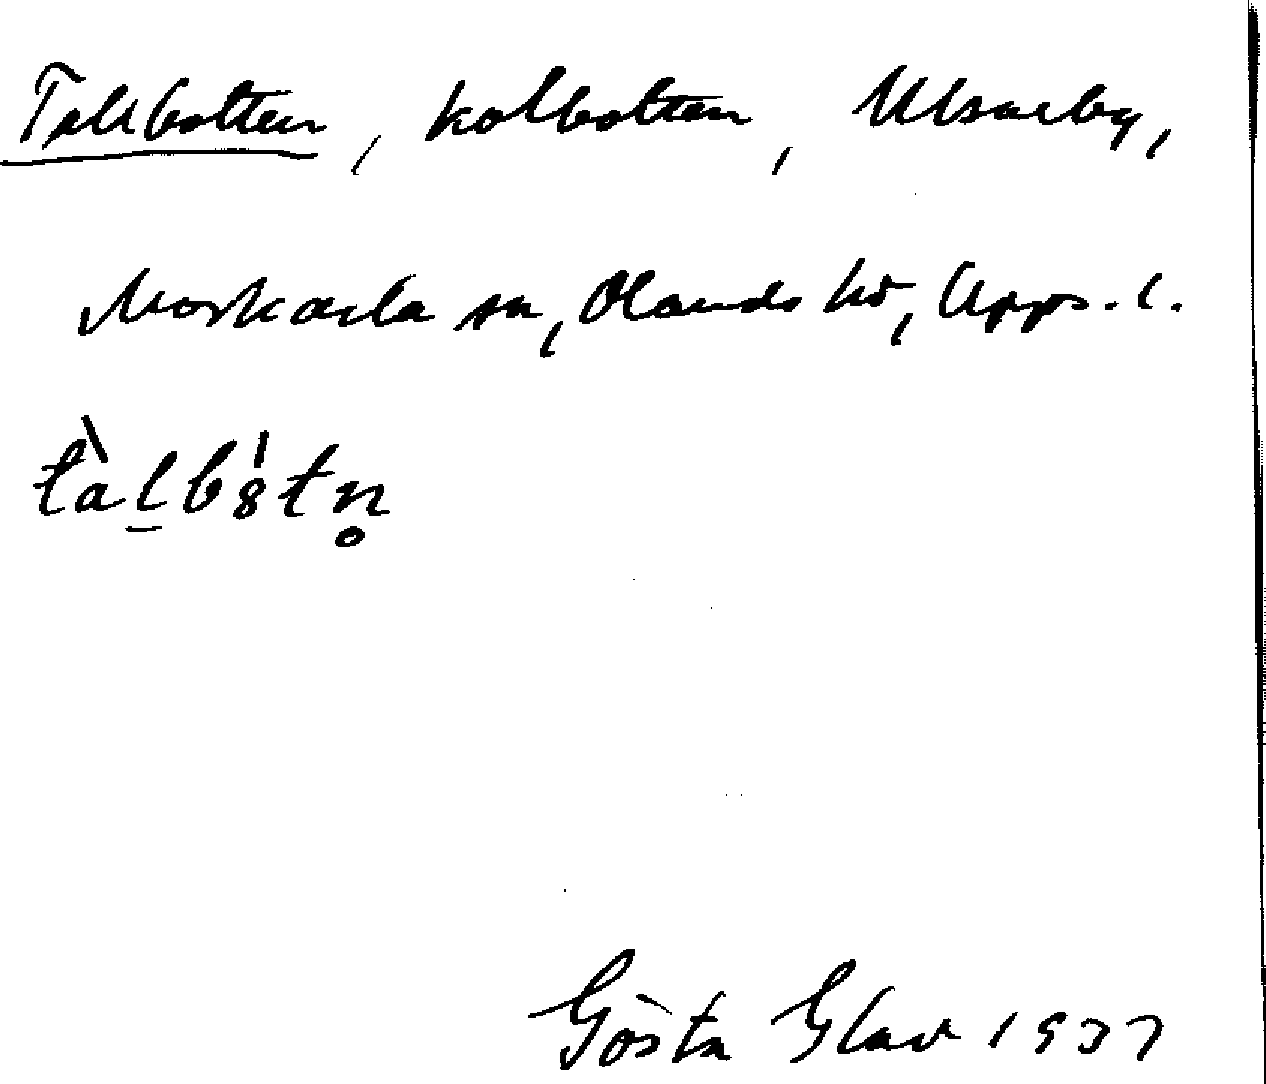 Tallbotten, kolbotten, Ulvsarby,
Morkarla sn, Olands hd, Upps. l.
tàl̲bȣ̍tn̥
Gösta Glav 1937